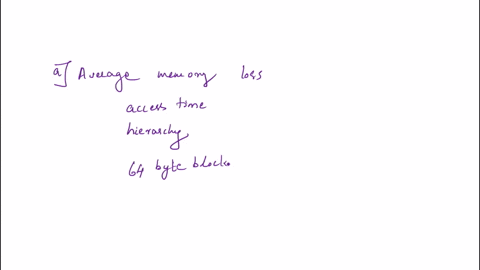 a] Average memory loss
access time
hierarchy
64 byte blocks